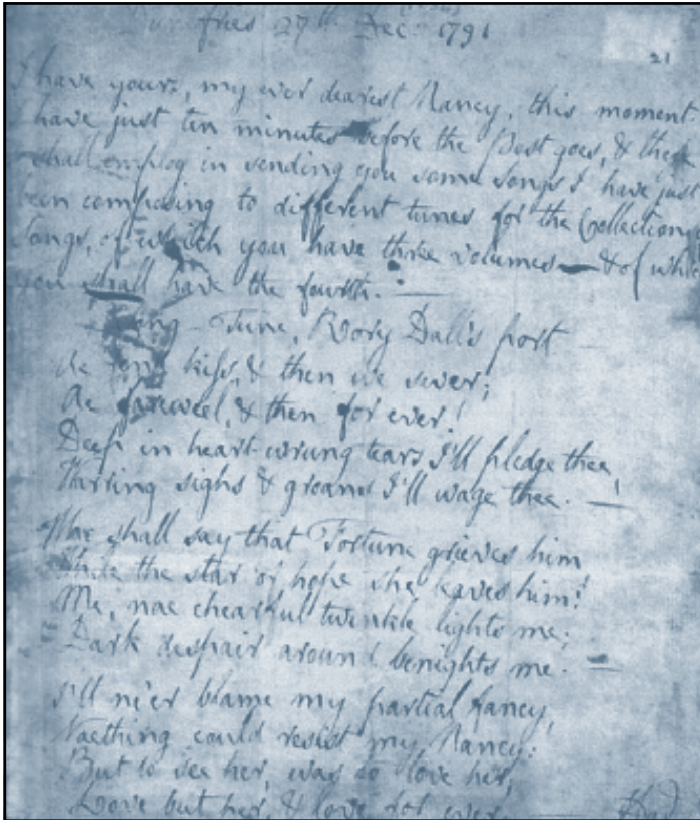 Dumfries 27th Dec: 1791
21
I have yours, my ever dearest Nancy, this moment.
have just ten minutes before the Post goes, & these
shall employ in sending you some Songs I have just
been composing to different tunes for the Collection of
Songs, of which you have three volumes — & of which
you shall have the fourth. —
Song — Tune, Rory Dall's port
Ae fond kiss, & then we sever;
Ae fareweel, & then for ever!
Deep in heart-wrung tears I'll pledge thee,
Warring sighs & groans I'll wage thee. —
Wha shall say that Fortune grieves him
While the star of hope she leaves him!
Me, nae chearful twinkle lights me;
Dark despair around benights me. —
I'll ne'er blame my partial fancy,
Naething could resist my Nancy:
But to see her, was to love her,
Love but her, & love for ever.
Had